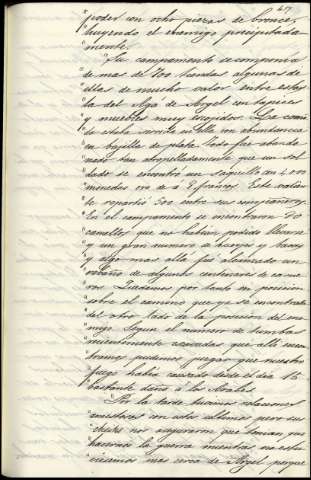 67
poder con ocho piezas de bronce,
huyendo el enemigo precipitada
mente.
Su campamento se componia
de mas de 400 tiendas algunas de
ellas de mucho valor entre estas
la del Aga de Argel con tapices
y muebles muy escojidos. La comi
da estaba servida en ella con abundancia
en bajilla de plata. Todo fue abando
nado tan atropelladamente que un sol
dado se encontró un saquillo con 4.000
monedas oro de á 9 francos. Este valien
te repartió 300 entre sus compañeros.
En el campamento se encontraron 90
camellos que no habian podido llevarse
y un gran numero de bueyes y vacas
y algo mas allá fué alcanzado un
rebaño de algunos centenares de carne
ros. Quedamos por tanto en posicion
sobre el camino que ya se encontraba
del otro lado de la posicion del ene
migo. Segun el numero de tumbas
recientemente cavadas que alli encon
tramos pudimos juzgar que nuestro
fuego habia causado desde el dia 15
bastante daño á los Arabes.
Por la tarde tuvimos relaciones
amistosas con estos ultimos pero sus
chefes nos aseguraron que tenian que
hacernos la guerra mientras no estu
viesemos mas cerca de Argel porque